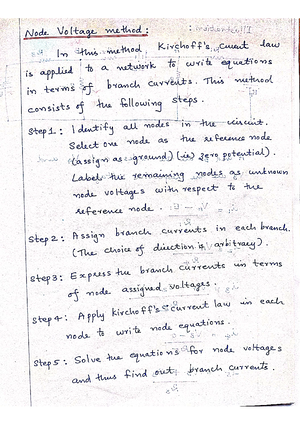 Node Voltage method :
In this method, Kirchoff's, current law
is applied to a network to write equations
in terms of branch currents. This method
consists of the following steps.
Step 1 : Identify all nodes in the circuit.
Select one node as the reference node
(assign as ground) (ie) zero potential).
Label the remaining nodes as unknown
node voltages with respect to the
reference node.
Step 2 : Assign branch currents in each branch.
(The choice of direction is arbitrary).
Step 3 : Express the branch currents in terms
of node assigned voltages.
Step 4 : Apply kirchoff's current law in each
node to write node equations.
Step 5 : Solve the equations for node voltages
and thus find out branch currents.